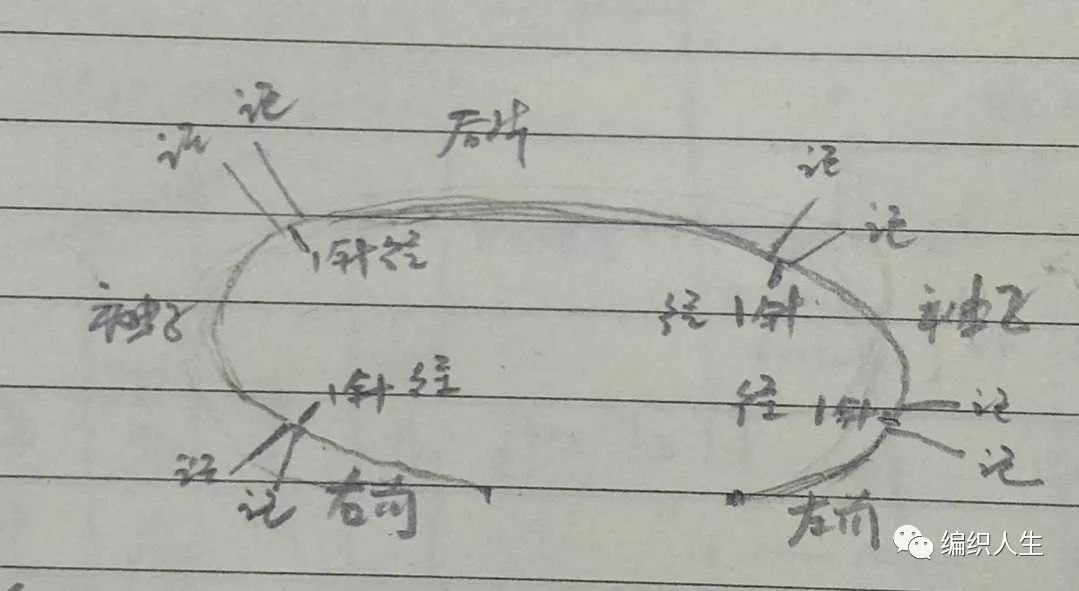 记
后片
记
记
记
1针经
经 1针
袖子
袖子
1针经
经 1针
记
记
记
记
右前
左前
编织人生